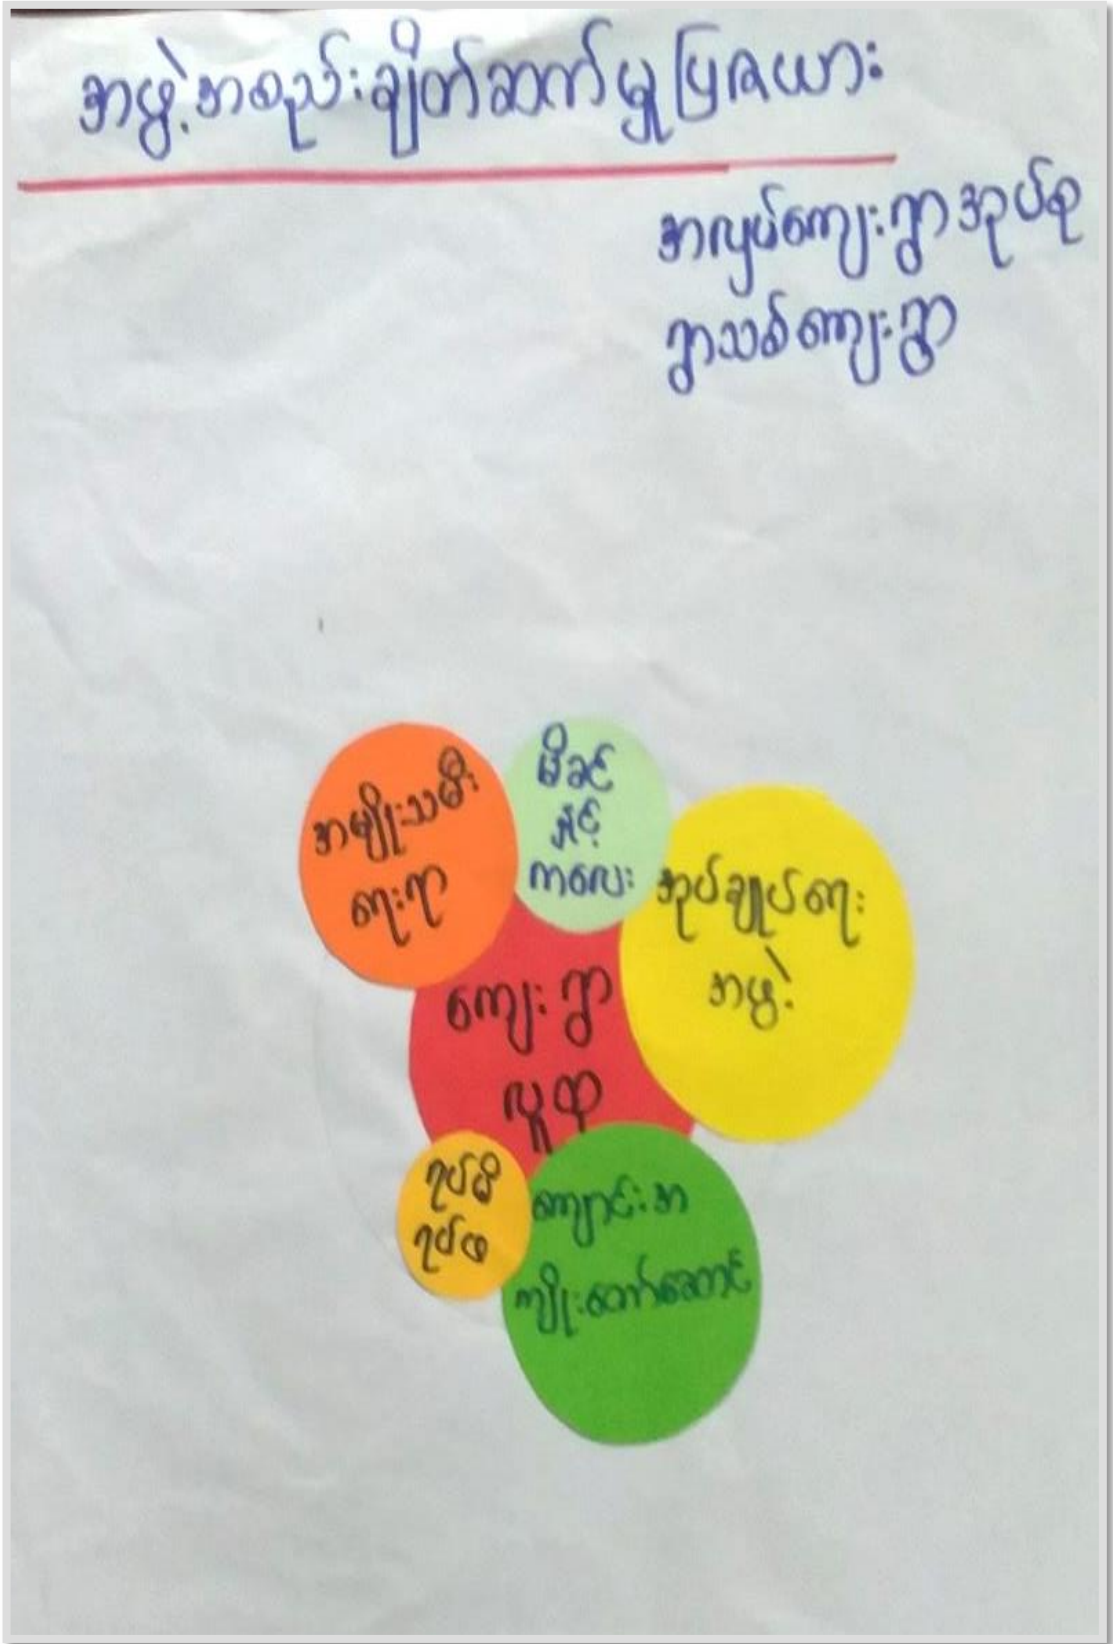 အဖွဲ့အစည်းချိတ်ဆက်မှုပြဇယား
အလျှပ်ကျေးရွာအုပ်စု
ရွာသစ်ကျေးရွာ
အမျိုးသမီး
ရေးရာ
မိခင်
နှင့်
ကလေး
အုပ်ချုပ်ရေး
အဖွဲ့
ကျေးရွာ
လူထု
ရပ်မိ
ရပ်ဖ
ကျောင်းအ
ကျိုးတော်ဆောင်